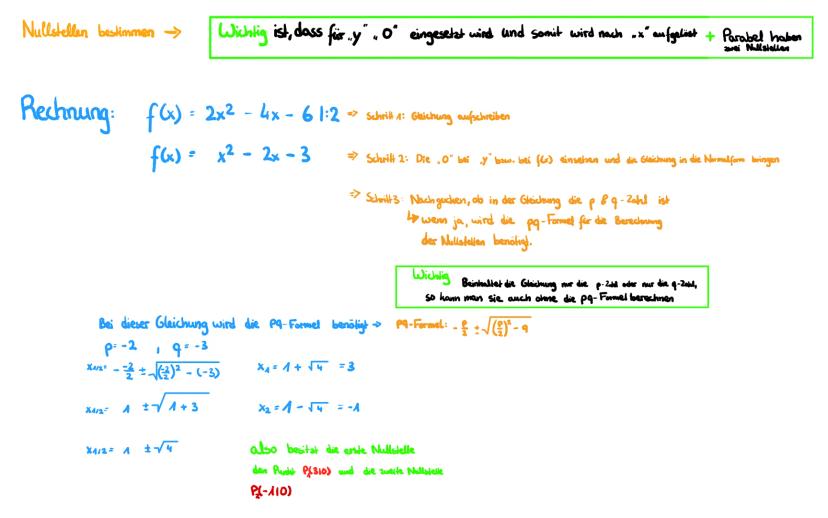 Nullstellen bestimmen → Wichtig ist, dass für „y" „0" eingesetzt wird und somit wird nach „x" aufgelöst + Parabel haben
zwei Nullstellen
Rechnung: f(x) = 2x² - 4x - 6 |:2 => Schritt 1: Gleichung aufschreiben
f(x) = x² - 2x - 3 => Schritt 2: Die „0" bei „y" bzw. bei f(x) einsetzen und die Gleichung in die Normalform bringen
=> Schritt 3: Nachgucken, ob in der Gleichung die p & q-Zahl ist
↳ wenn ja, wird die pq-Formel für die Berechnung
der Nullstellen benötigt.
Wichtig Beinhaltet die Gleichung nur die p-Zahl oder nur die q-Zahl,
so kann man sie auch ohne die pq-Formel berechnen
Bei dieser Gleichung wird die pq-Formel benötigt → pq-Formel: -p/2 ± √((p/2)² - q)
p = -2 , q = -3
x1/2 = - -2/2 ± √((-2/2)² - (-3)) x1 = 1 + √4 = 3
x1/2 = 1 ± √1 + 3 x2 = 1 - √4 = -1
x1/2 = 1 ± √4 also besitzt die erste Nullstelle
den Punkt P1(3|0) und die zweite Nullstelle
P2(-1|0)